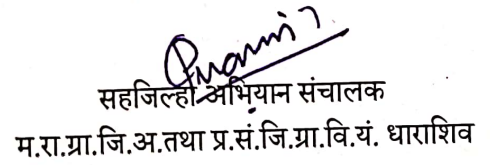 सहजिल्हा अभियान संचालक
म.रा.ग्रा.जि.अ.तथा प्र.सं.जि.ग्रा.वि.यं. धाराशिव